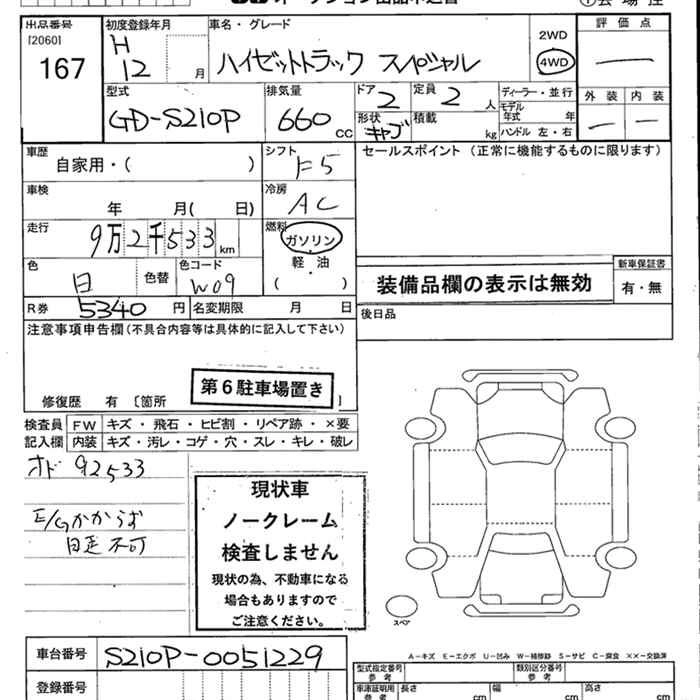 出品番号
[2060]
167
初度登録年月
H
12 月
車名・グレード
ハイゼットトラック スペシャル
2WD
4WD
評価点
型式
GD-S210P
排気量
660 CC
ドア
2
定員
2 人
形状
キャブ
積載 kg
ディーラー・並行
モデル年式 年
ハンドル 左・右
外装 内装
車歴
自家用・( )
シフト
F5
セールスポイント (正常に機能するものに限ります)
車検
年 月( 日)
冷房
AC
走行
9万2千533km
燃料
ガソリン
軽・油
( )
色
白 色替
色コード
W09
装備品欄の表示は無効
新車保証書
有・無
R券 5340 円
名変期限 月 日
後日品
注意事項申告欄(不具合内容等は具体的に記入して下さい)
第6駐車場置き
修復歴 有 〔箇所 〕
検査員記入欄
FW キズ・飛石・ヒビ割・リペア跡・×要
内装 キズ・汚レ・コゲ・穴・スレ・キレ・破レ
オド 92533
E/Gかからず
自走不可
現状車
ノークレーム
検査しません
現状の為、不動車になる
場合もありますので
ご注意ください。
スペア
A-キズ E-エクボ U-凹み W-補修跡 S-サビ C-腐食 ××-交換済
車台番号 S210P-0051229
登録番号
型式指定番号
参考
類別区分番号
参考
車庫証明用
参考
長さ cm
幅 cm
高さ cm